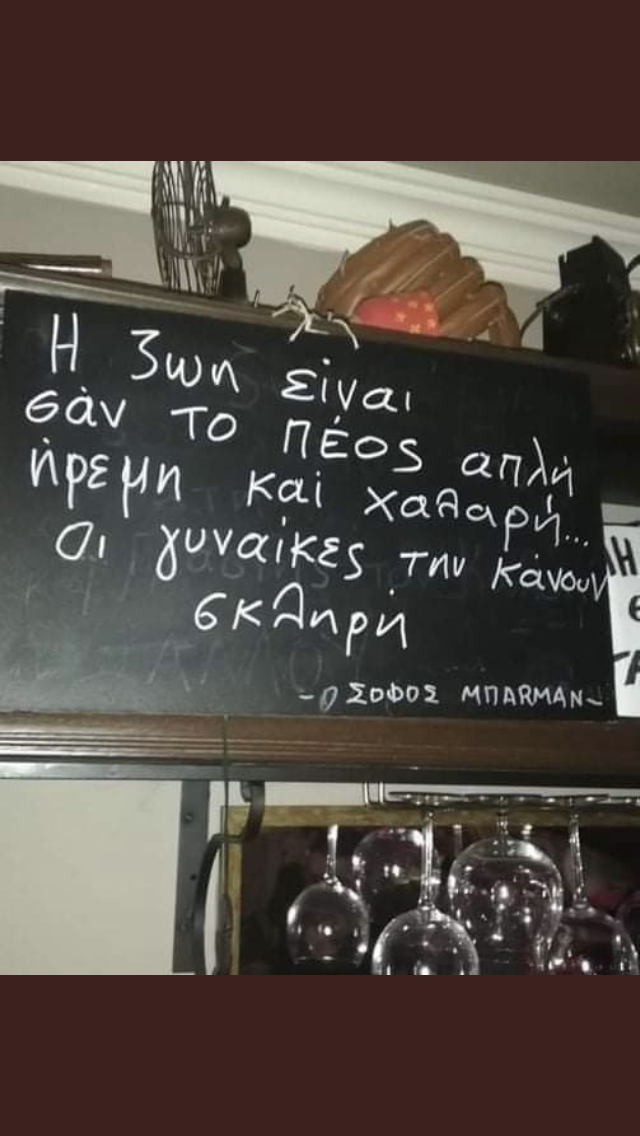 Η ζωη είναι
σάν το πέος απλή
ήρεμη καί χαλαρή...
Οι γυναίκες την κάνουν
σκληρή
- Ο ΣΟΦΟΣ ΜΠΑRMAN -